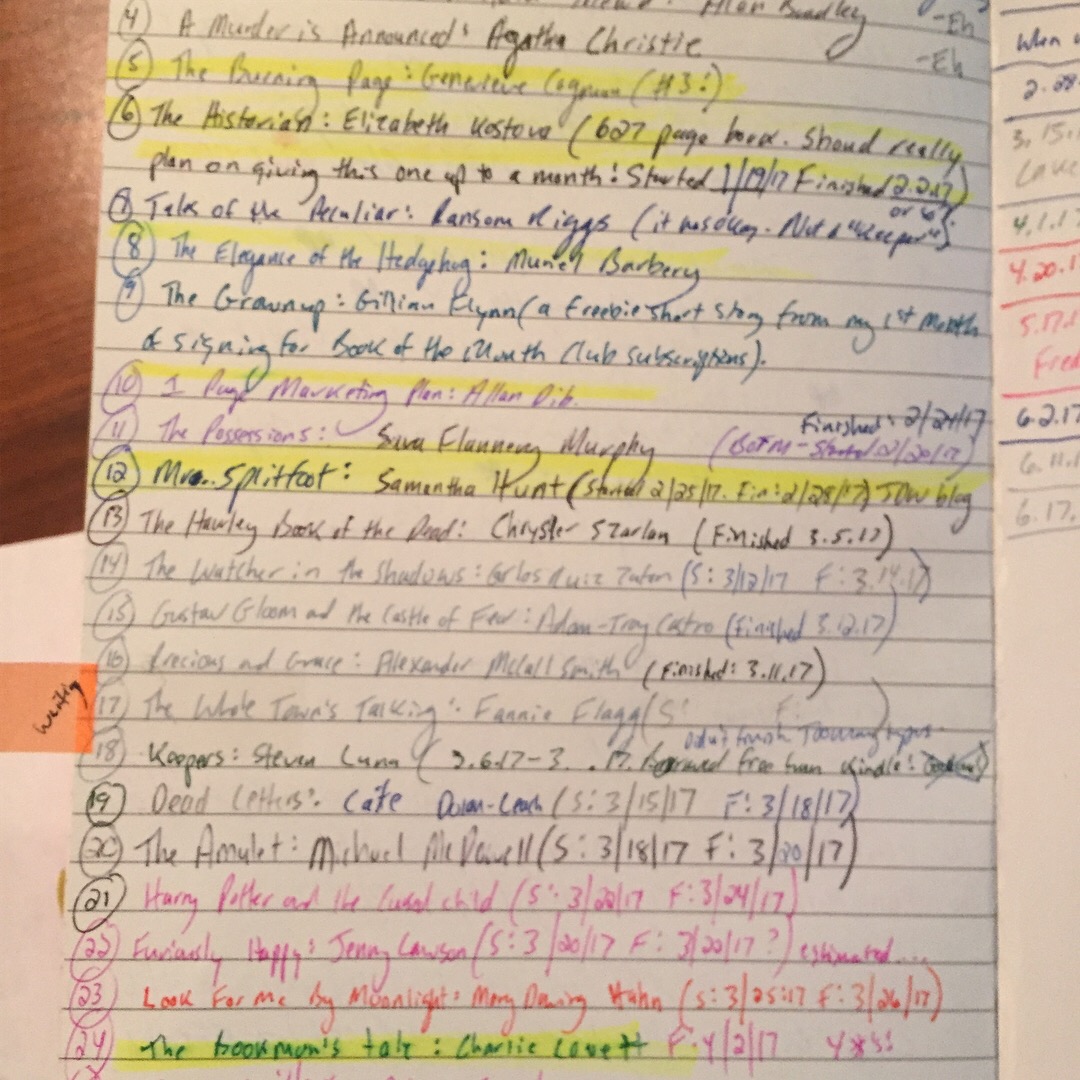 Alan Bradley -Eh
4 A Murder is Announced: Agatha Christie -Eh
5 The Burning Page: Genevieve Cogman (#3!)
6 The Historian: Elizabeth Kostova (627 page book. Should really
plan on giving this one up to a month! Started 1/19/17 Finished 2.2.17)
or
7 Tales of the Peculiar: Ransom Riggs (it was okay. Not a "keeper")
8 The Elegance of the Hedgehog: Muriel Barbery
9 The Grownup: Gillian Flynn (a freebie short story from my 1st month
of signing for Book of the Month Club subscriptions).
10 1 Page Marketing Plan: Allan Dib.
Finished: 2/24/17
11 The Possessions: Sara Flannery Murphy (BOTM-Started 2/20/17)
12 Mr. Splitfoot: Samantha Hunt (Started 2/25/17. Fin: 2/28/17) TDW blog
13 The Hawley Book of the Dead: Chrysler Szarlan (Finished 3.5.17)
14 The Watcher in the Shadows: Carlos Ruiz Zafon (S: 3/12/17 F: 3.14.17)
15 Gustav Gloom and the Castle of Fear: Adam-Troy Castro (Finished 3.12.17)
16 Precious and Grace: Alexander McCall Smith (Finished: 3.11.17)
writing
17 The Whole Town's Talking: Fannie Flagg (S: F: )
didn't finish Too many typos.
18 Keepers: Steven Luna ( 3.6.17-3. . 17. free from Kindle!
19 Dead Letters: Caite Dolan-Leach (S: 3/15/17 F: 3/18/17)
20 The Amulet: Michael McDowell (S: 3/18/17 F: 3/20/17)
21 Harry Potter and the Cursed child (S: 3/22/17 F: 3/24/17)
22 Furiously Happy: Jenny Lawson (S: 3/20/17 F: 3/22/17?) estimated....
23 Look For Me By Moonlight: Mary Downing Hahn (S: 3/25:17 F: 3/26/17)
24 The bookman's tale: Charlie Lovett F: 4/2/17
When
2.28
3.15.
4.1.1
4.20.1
5.17.1
6.2.17
6.11.1
6.17.